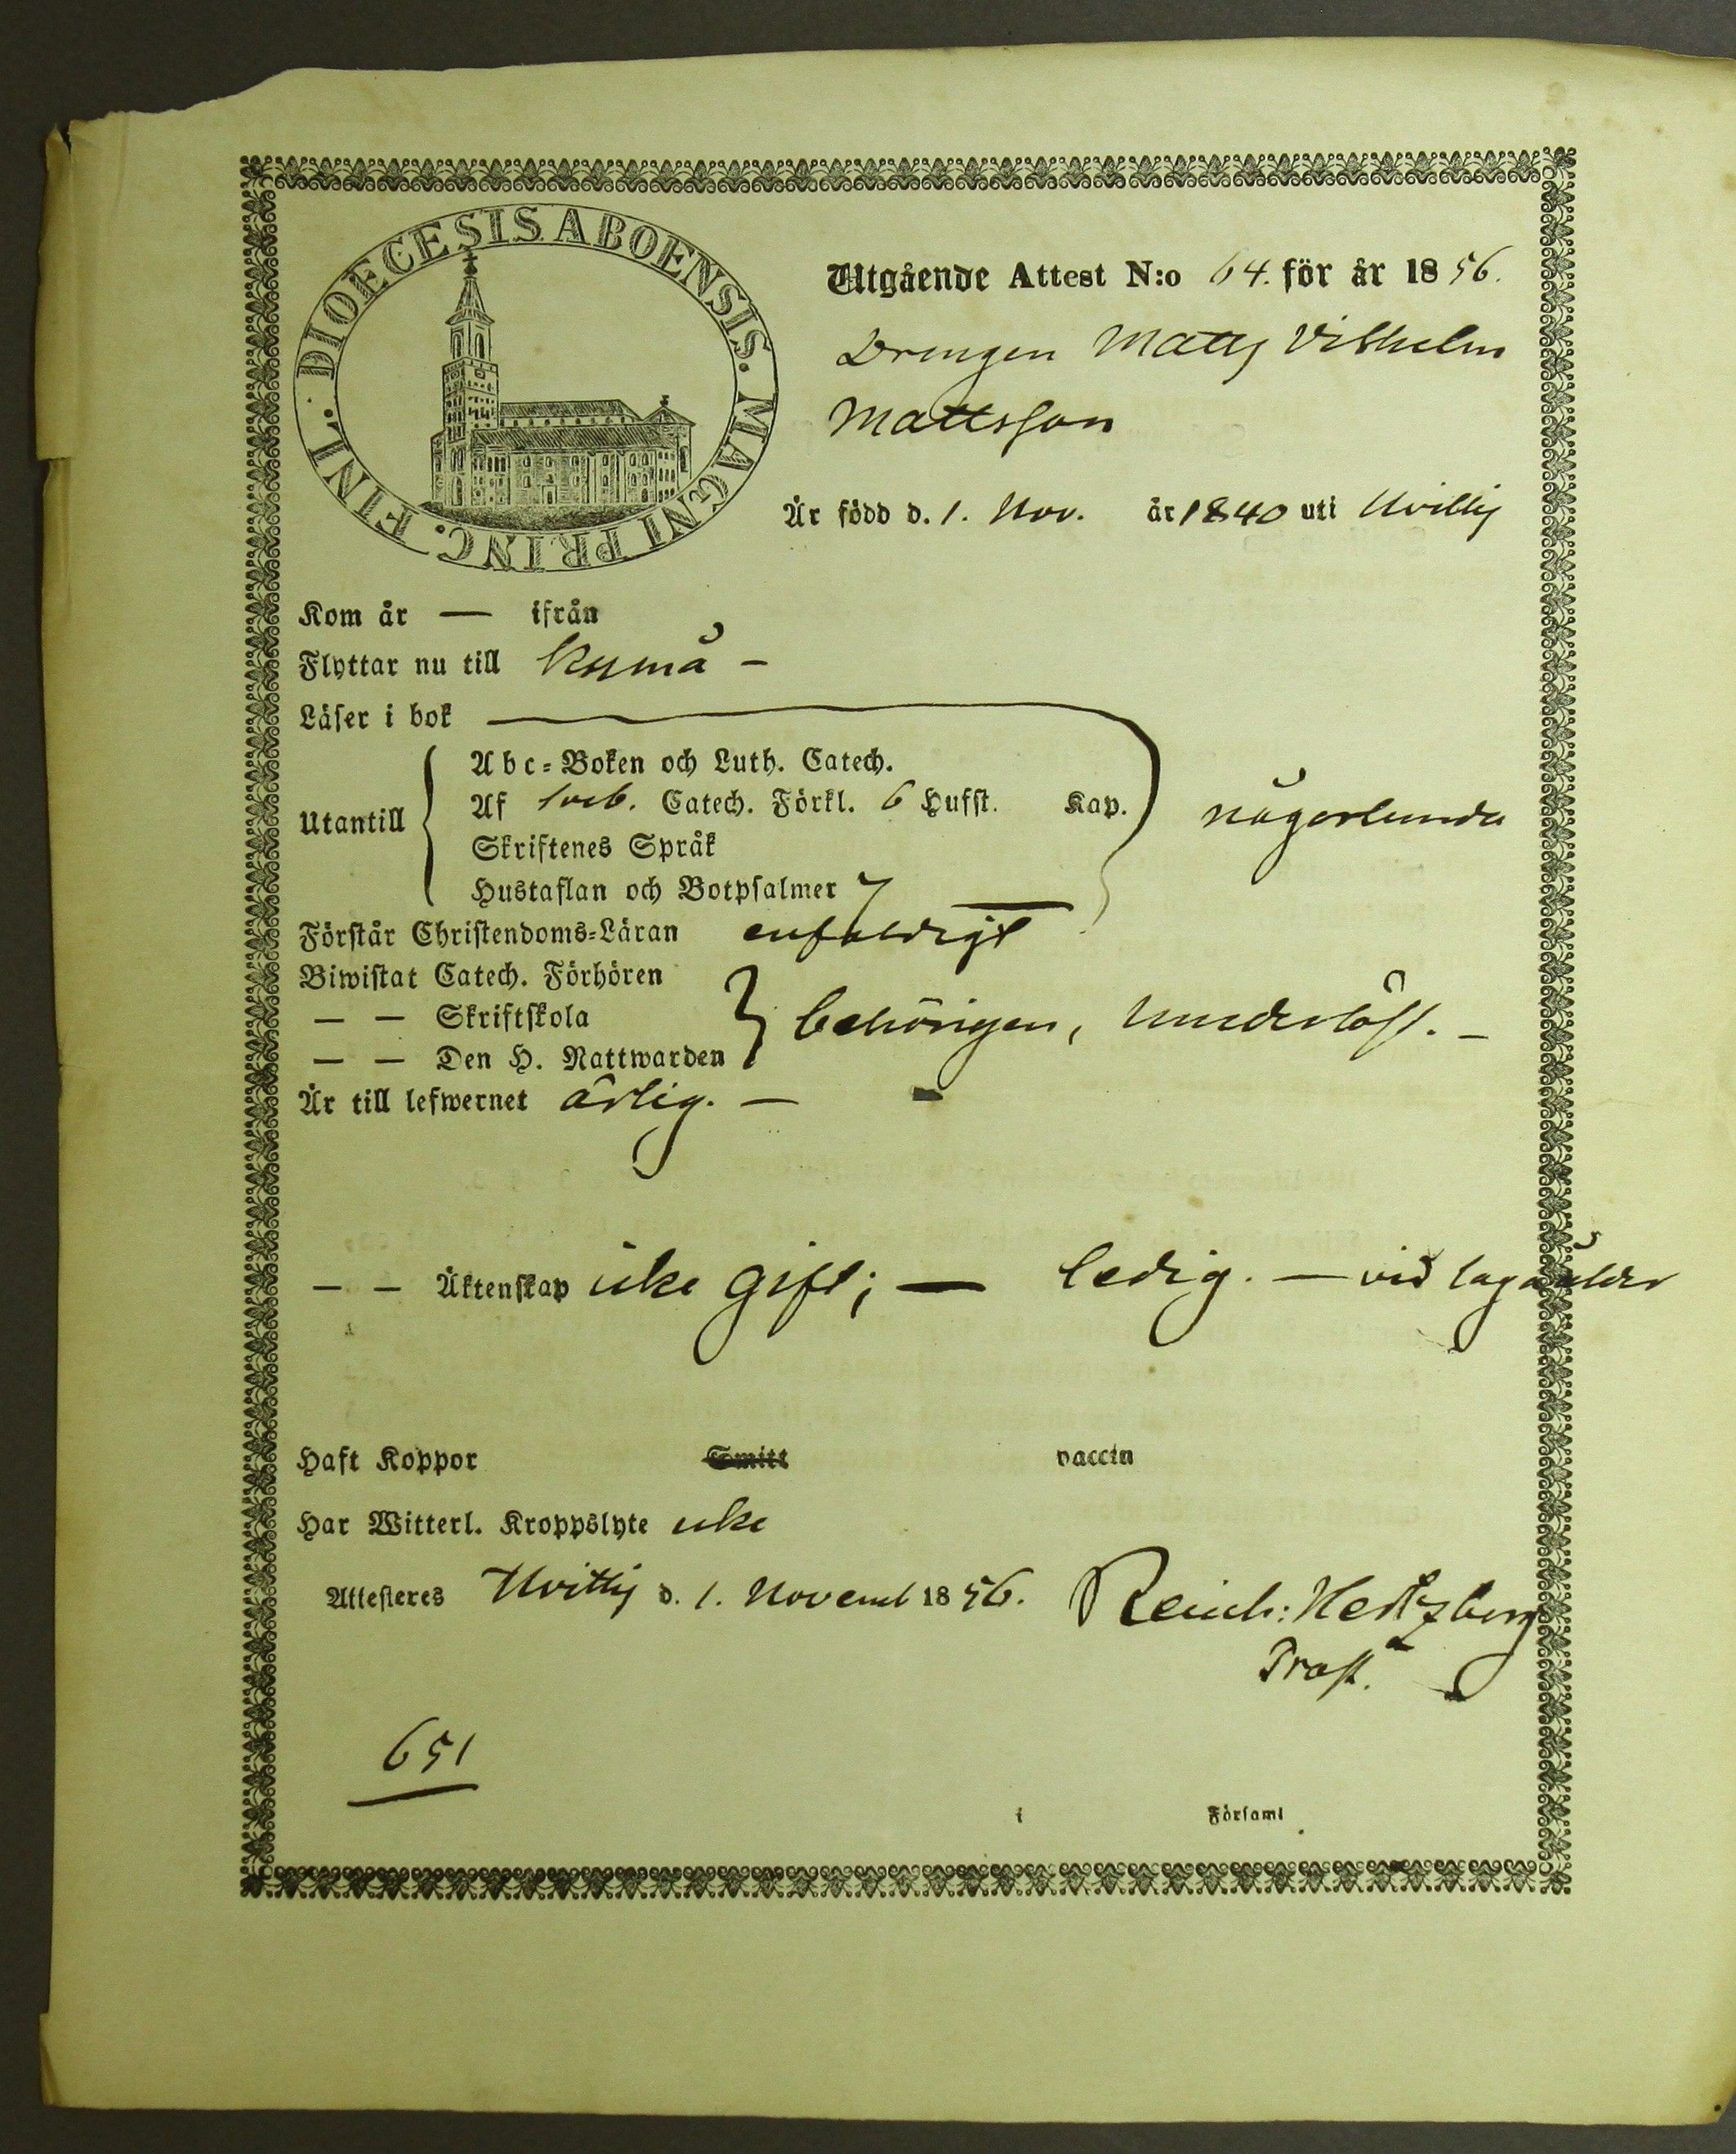 DIOECESIS ABOENSIS. MAGNI PRINC. FINL.
Utgående Attest N:o 64. för år 1856.
Drengen Matts Vilhelm
Mattsson
Är född d. 1. Nov. år 1840 uti Hvittis
Kom år — ifrån
Flyttar nu till Kumå –
Läser i bok
Utantill
Abc-Boken och Luth. Catech.
Af Sveb. Catech. Förkl. 6 Hufst. Kap. någorlunda
Skriftenes Språk
Hustaflan och Botpsalmer
Förstår Christendoms-Läran enfaldigt
Biwistat Catech. Förhören
— — Skriftskola behörigen,
— — Den H. Nattwarden
Är till lefwernet ärlig. —
— — Äktenskap icke gift; — ledig. — vid laga ålder
Haft Koppor Smitt vaccin
Har Witterl. Kroppslyte icke
Attesteres Hvittis d. 1. Novemb 1856. Reinh: Hertzberg
Prost.
651
i Församl